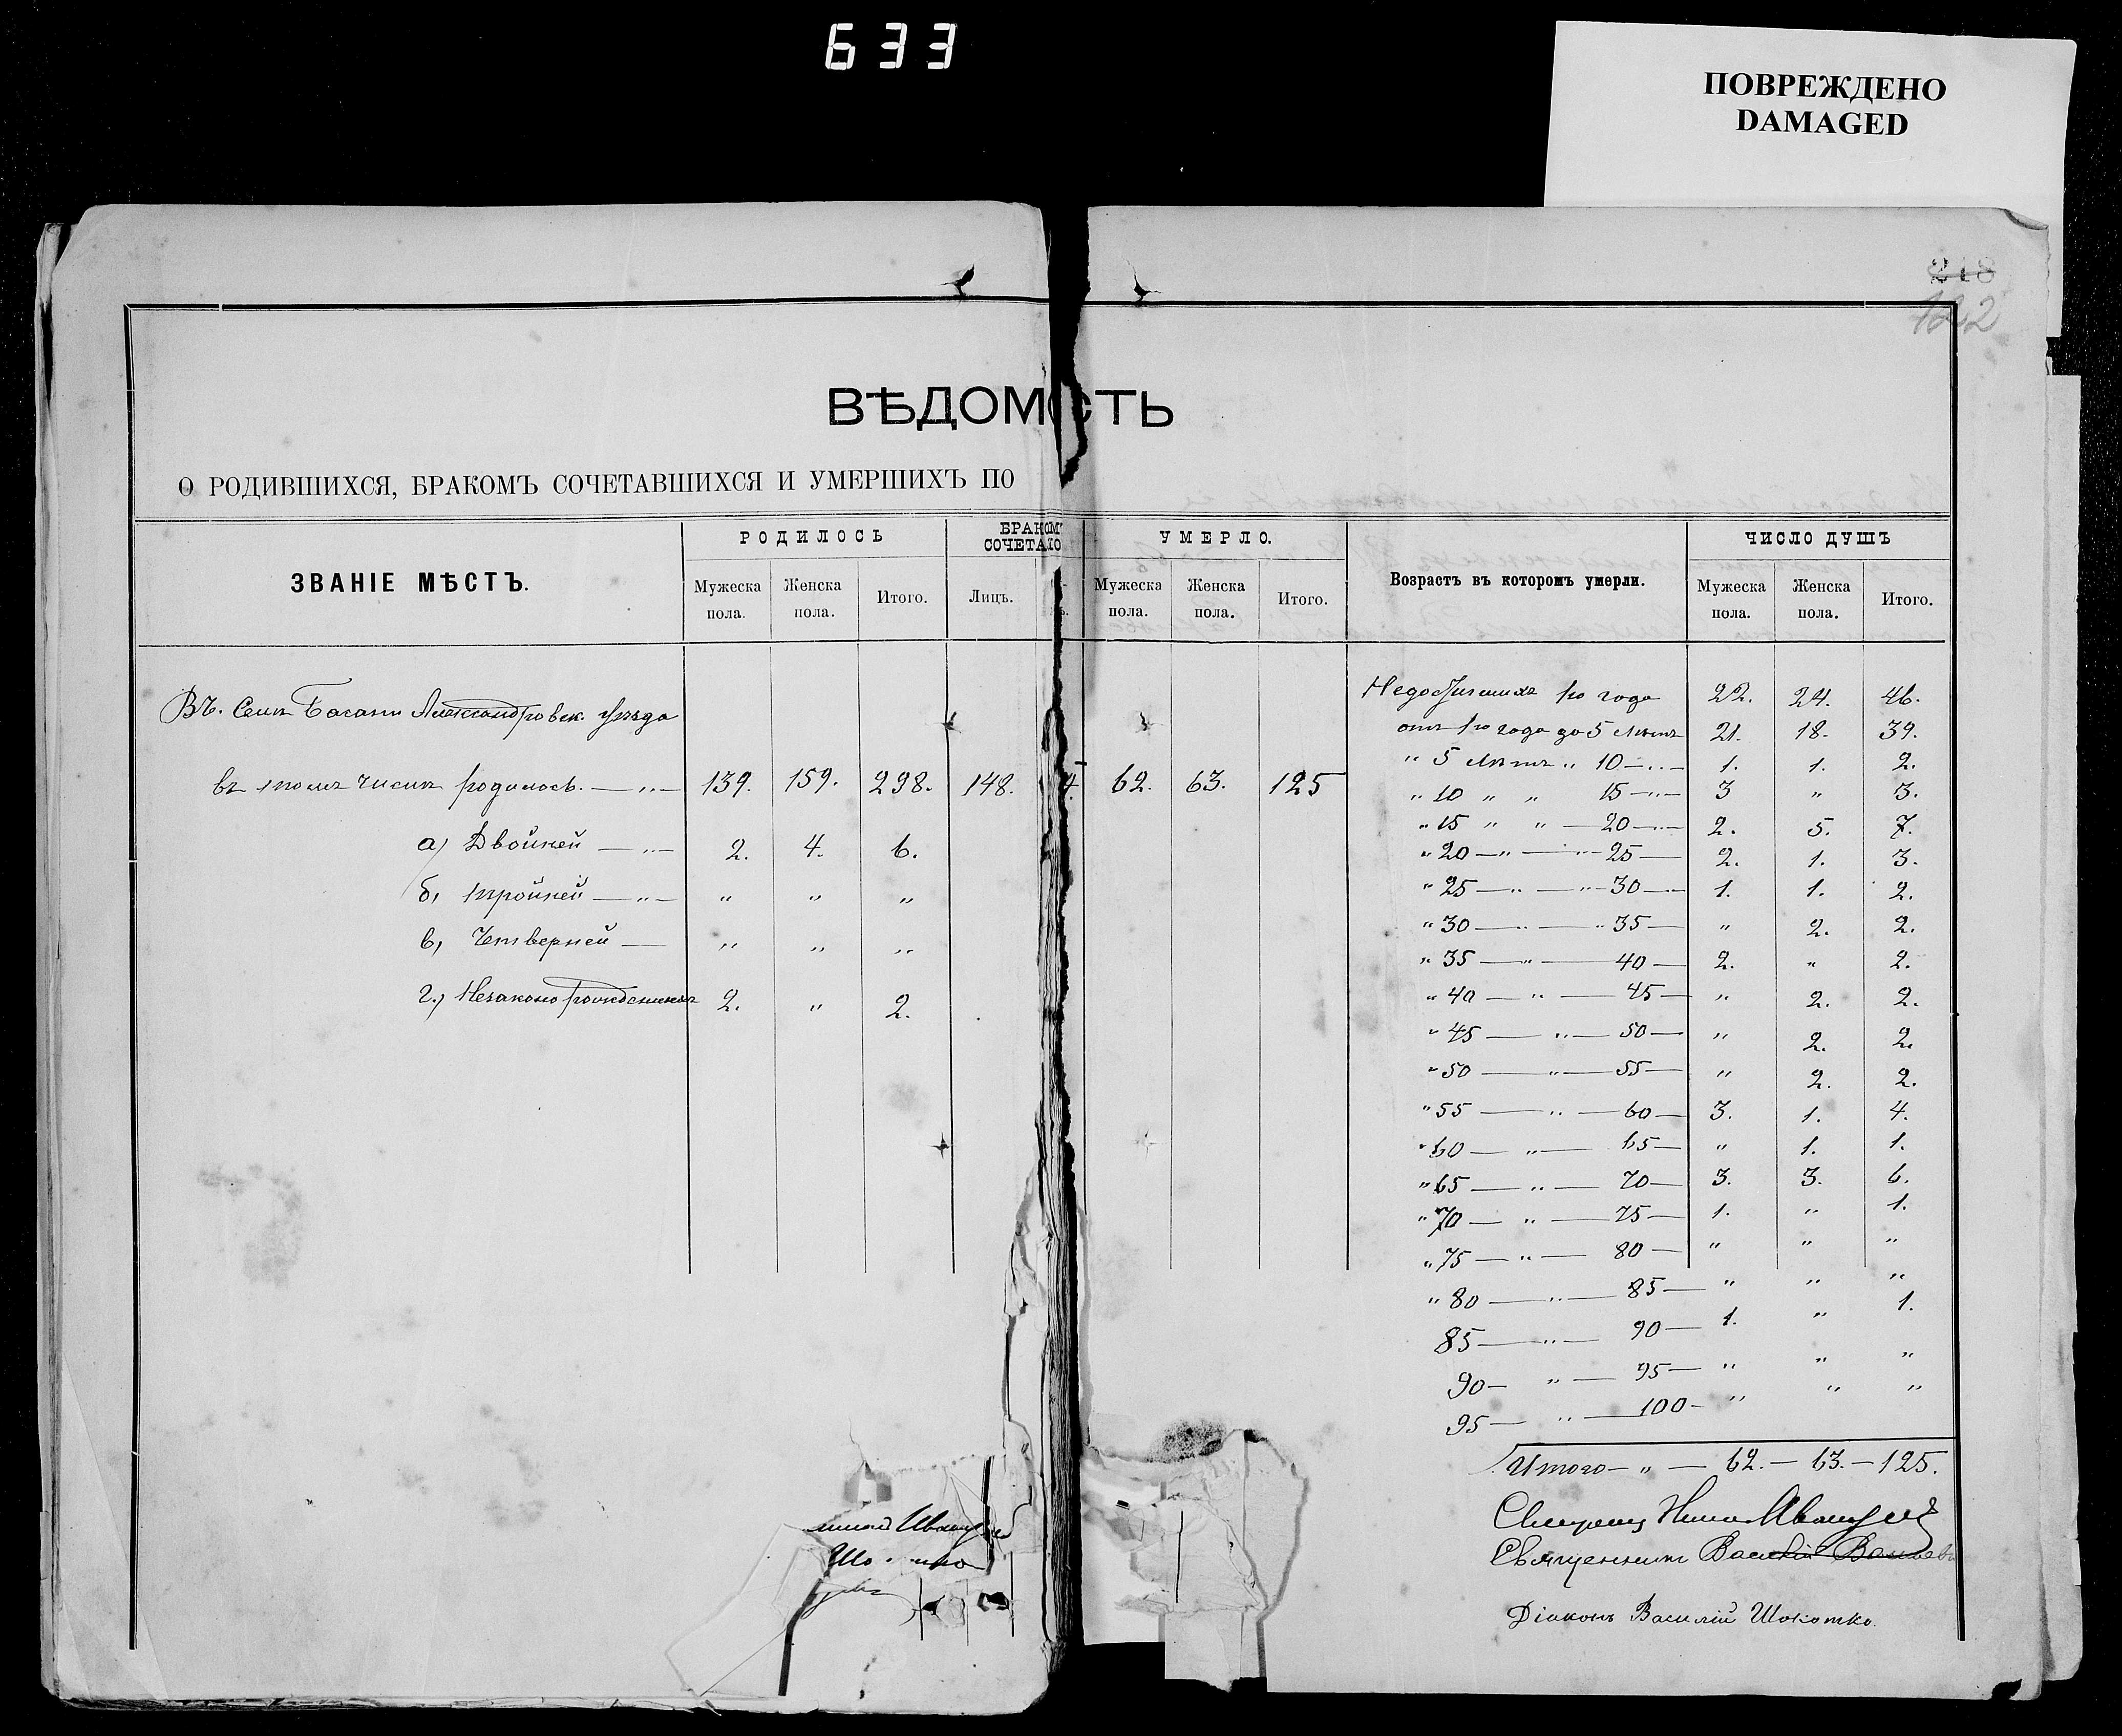 633
ПОВРЕЖДЕНО
DAMAGED
218
122
ВѢДОМОСТЬ
О РОДИВШИХСЯ, БРАКОМЪ СОЧЕТАВШИХСЯ И УМЕРШИХЪ ПО
ЗВАНІЕ МѢСТЪ. РОДИЛОСЬ БРАКОМ СОЧЕТАЛО УМЕРЛО. Возрастъ въ которомъ умерли. ЧИСЛО ДУШЪ
Мужеска пола. Женска пола. Итого. Лицъ. Мужеска пола. Женска пола. Итого. Мужеска пола. Женска пола. Итого.
Въ. Селѣ Басани Александровск. уѣзда
въ томъ числѣ родилось. — „ — 139. 159. 298. 148. 4. 62. 63. 125
а) Двойней — „ — 2. 4. 6.
б) тройней — „ — „ „ „
в) Четверней — „ „ „
г.) Незаконорожденныхъ 2. „ 2.
Недостигшихъ 1го года 22. 24. 46.
отъ 1го года до 5 лѣтъ 21. 18. 39.
„ 5 лѣтъ „ 10 — „ — 1. 1. 2.
„ 10 „ „ 15 — „ — 3 „ 3.
„ 15 „ „ — 20 — „ — 2. 5. 7.
„ 20 — „ — „ — 25 — 2. 1. 3.
„ 25 — „ — „ — 30 — 1. 1. 2.
„ 30 — „ — „ 35 — „ 2. 2.
„ 35 — „ — 40 — 2. „ 2.
„ 40 — „ — 45 — „ 2. 2.
„ 45 — „ — 50 — „ 2. 2.
„ 50 — „ — 55 — „ 2. 2.
„ 55 — „ — 60 — 3. 1. 4.
„ 60 — „ — 65 — „ 1. 1.
„ 65 — „ — 70 — 3. 3. 6.
„ 70 — „ — 75 — 1. „ 1.
„ 75 — „ — 80 — „ „ „
„ 80 — „ — 85 — „ „ „
85 — „ — 90 — 1. „ 1.
90 — „ — 95 — „ „ „
95 — „ — 100 — „ „ „
Итого — „ — 62. — 63. — 125.
Священникъ Василій
Діаконъ Василій Шокотко.